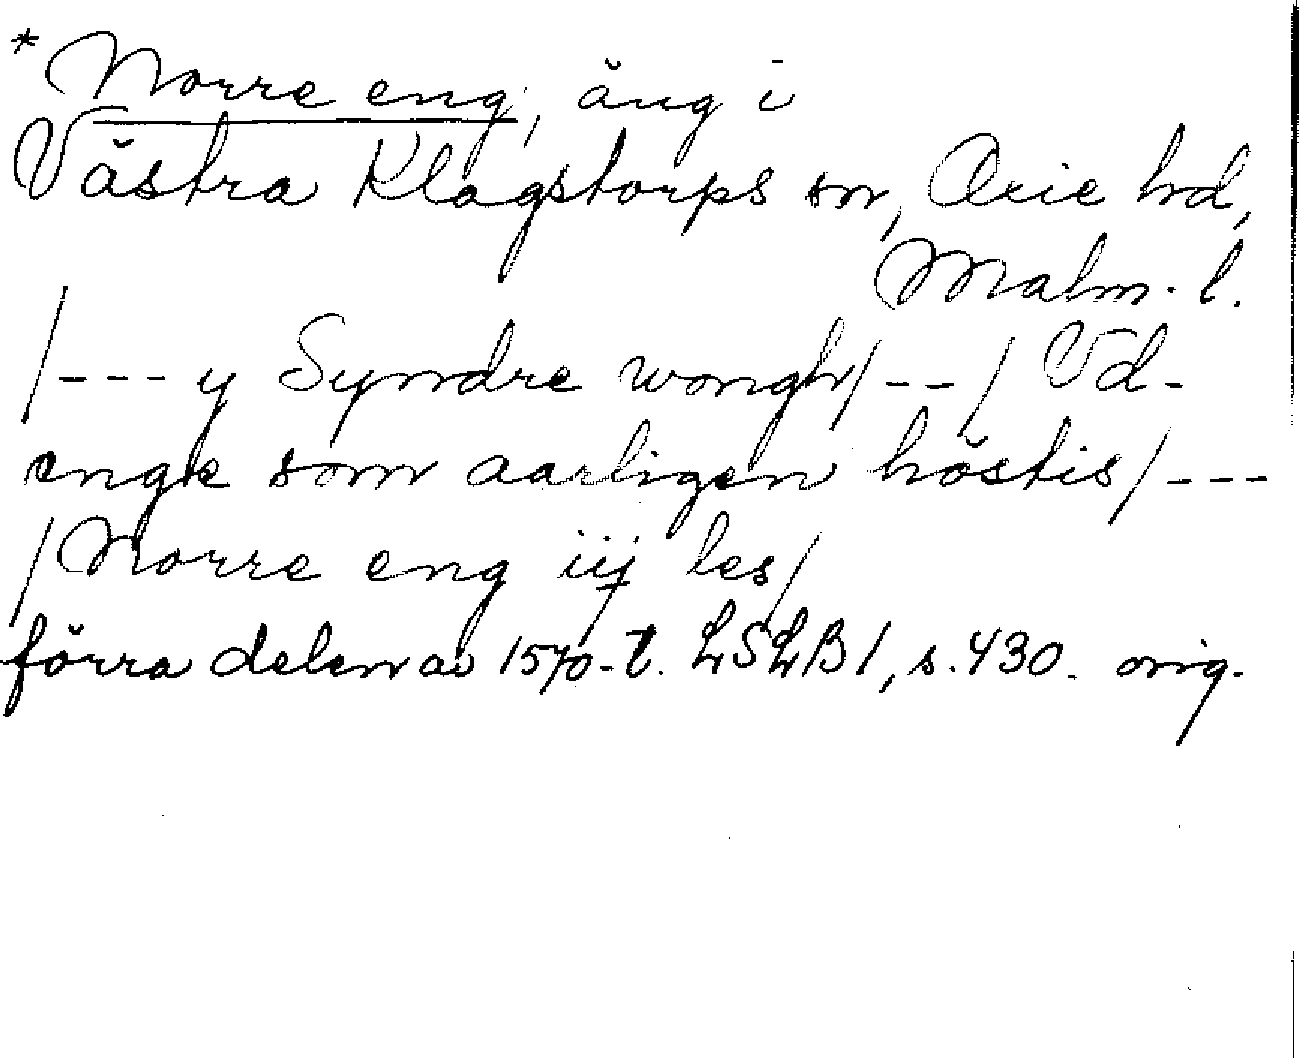 *Norre eng, äng i
Västra Klagstorps sn, Oxie hd,
Malm. l.
/--- y Syndre wongh/--/ Vd-
engk som aarligen höstis/---
/Norre eng iij les/
förra delen av 1570-t. LSLB1, s.430. orig.